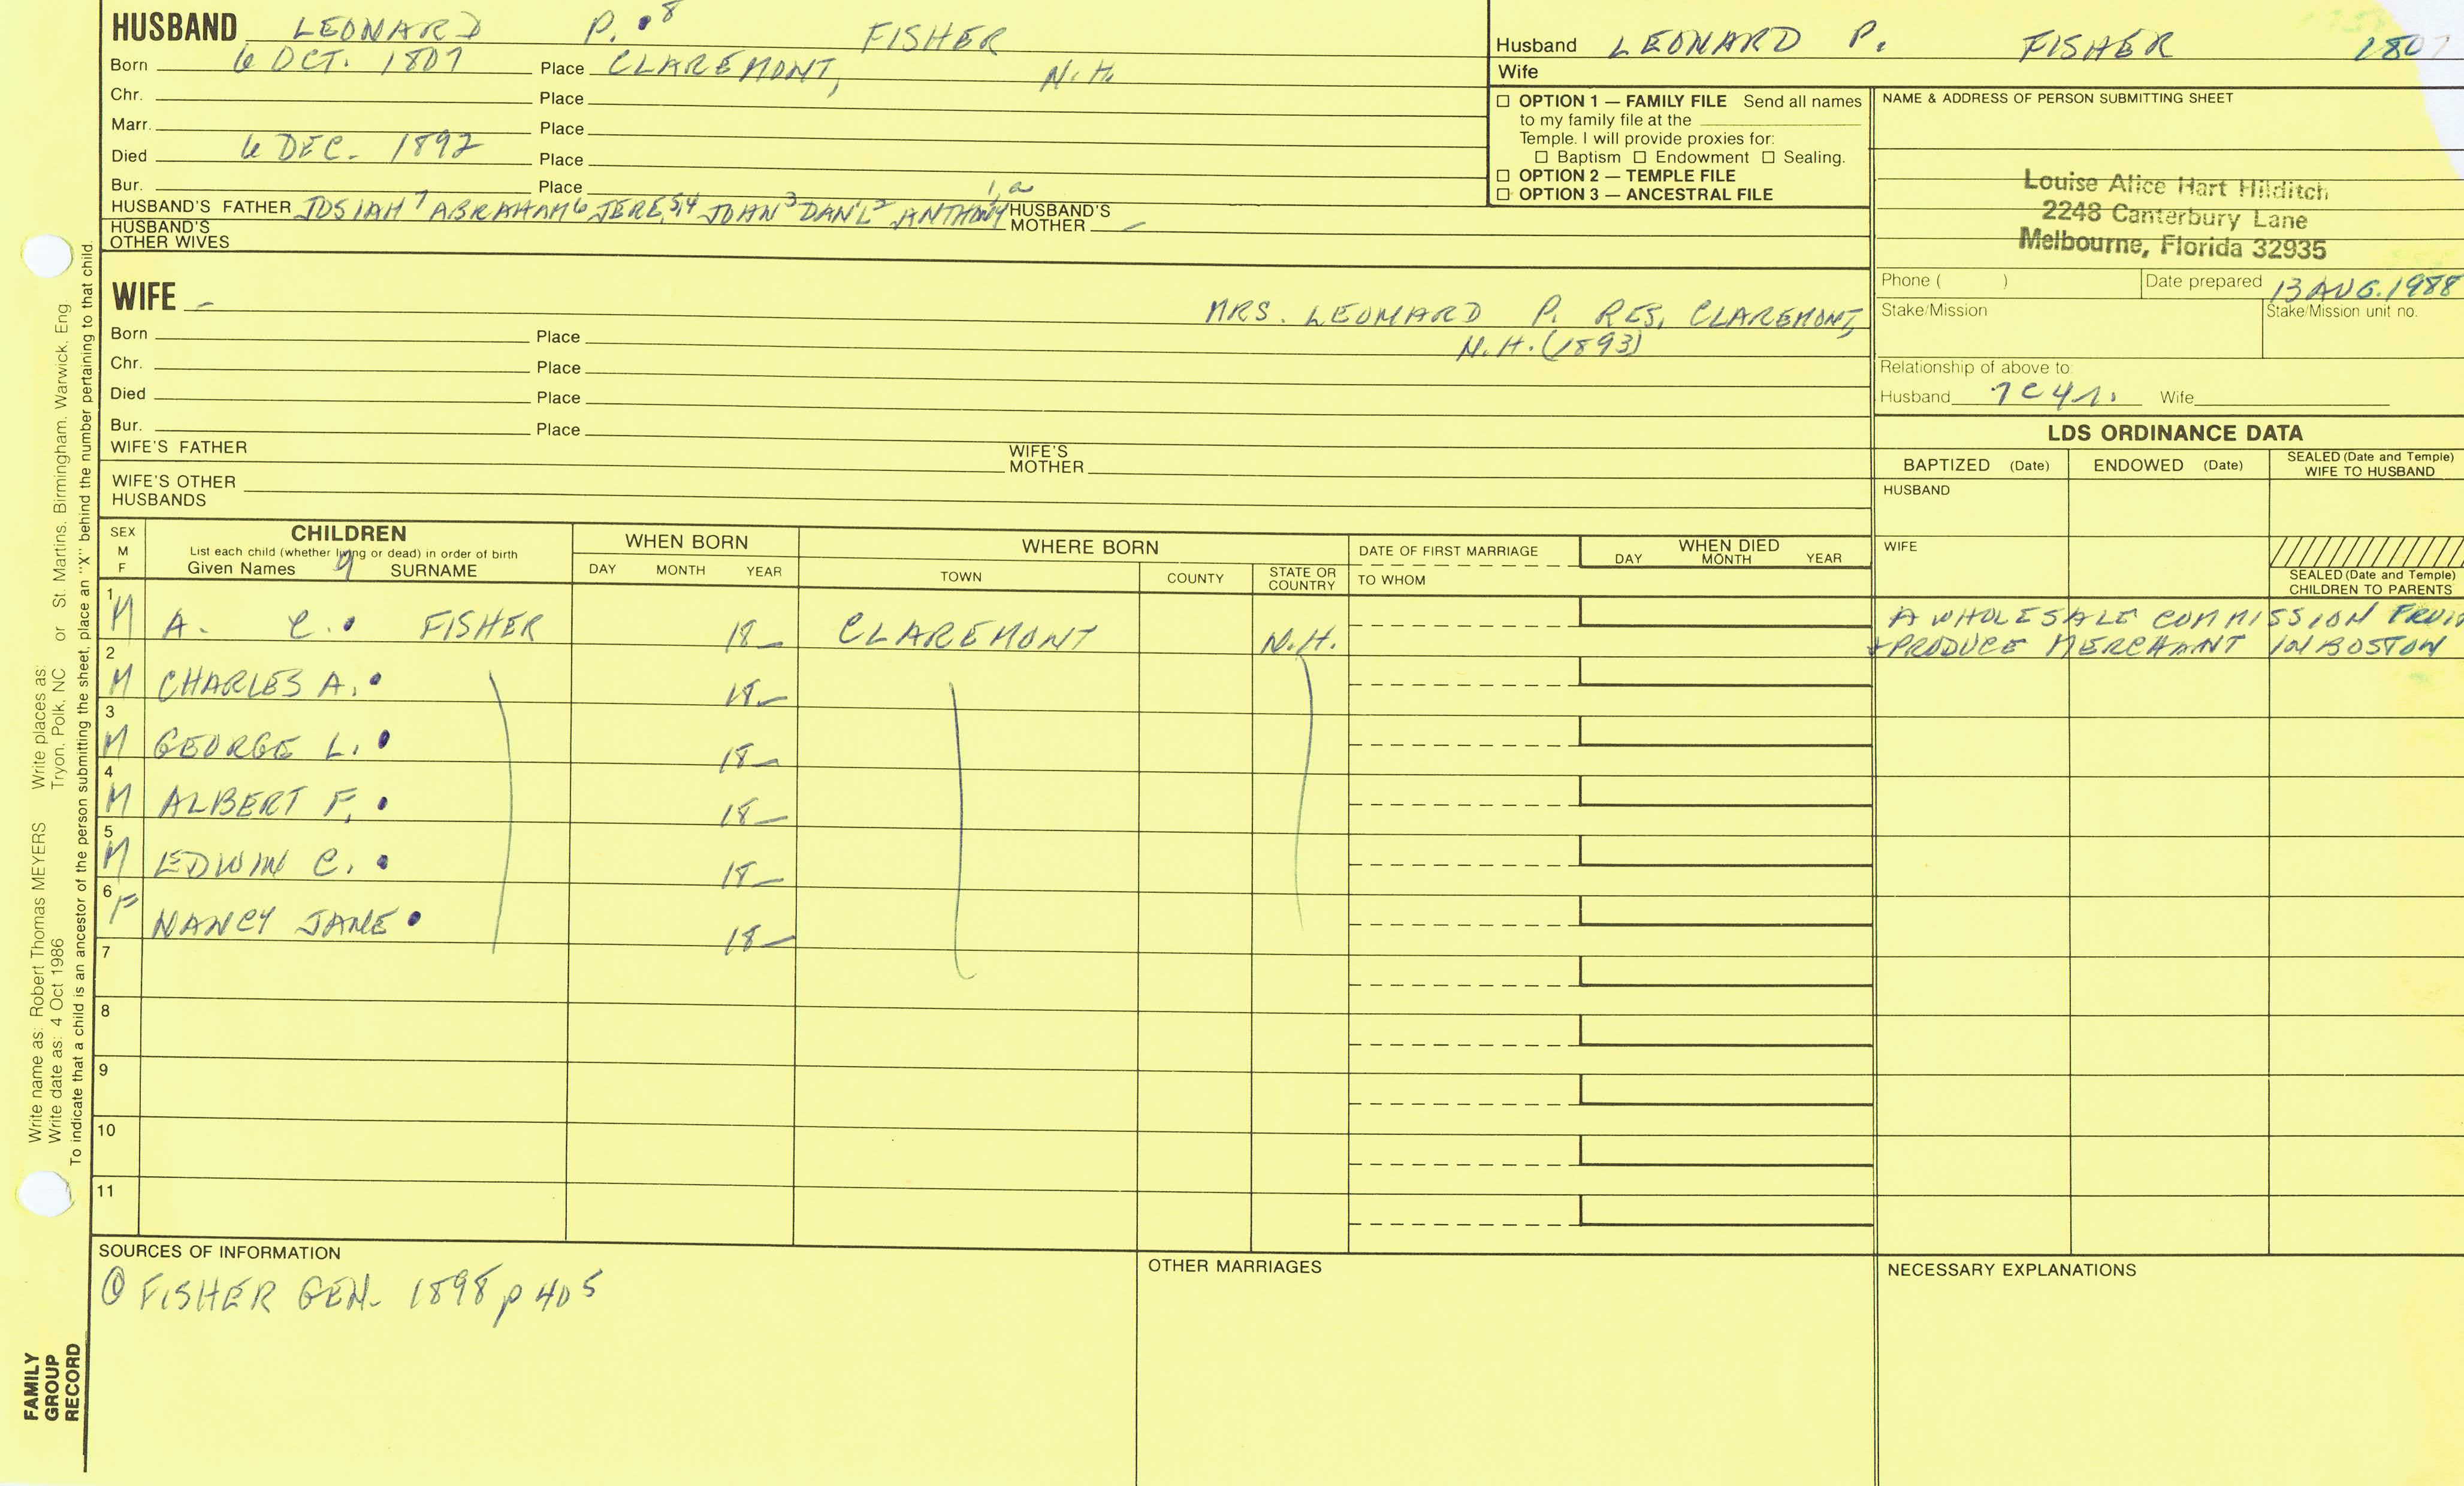 HUSBAND LEONARD P. 8 FISHER
Born 6 OCT. 1807 Place CLAREMONT, N.H.
Chr. Place
Marr. Place
Died 6 DEC. 1892 Place
Bur. Place
HUSBAND'S FATHER JOSIAH 7 ABRAHAM 6 JERE. 5,4 JOHN 3 DAN'L 2 ANTHONY 1,a HUSBAND'S MOTHER –
HUSBAND'S OTHER WIVES
WIFE – MRS. LEONARD P. RES. CLAREMONT,
N.H. (1893)
Born Place
Chr. Place
Died Place
Bur. Place
WIFE'S FATHER WIFE'S MOTHER
WIFE'S OTHER HUSBANDS
Husband LEONARD P. FISHER 1807
Wife
OPTION 1 — FAMILY FILE Send all names
to my family file at the
Temple. I will provide proxies for:
Baptism Endowment Sealing.
OPTION 2 — TEMPLE FILE
OPTION 3 — ANCESTRAL FILE
NAME & ADDRESS OF PERSON SUBMITTING SHEET
Louise Alice Hart Hilditch
2248 Canterbury Lane
Melbourne, Florida 32935
Phone ( ) Date prepared 13 AUG. 1988
Stake/Mission Stake/Mission unit no.
Relationship of above to:
Husband 7C4R. Wife
LDS ORDINANCE DATA
BAPTIZED (Date) ENDOWED (Date) SEALED (Date and Temple) WIFE TO HUSBAND
HUSBAND
WIFE
SEALED (Date and Temple) CHILDREN TO PARENTS
SEX M F
CHILDREN
List each child (whether living or dead) in order of birth
Given Names 9 SURNAME
WHEN BORN
DAY MONTH YEAR
WHERE BORN
TOWN COUNTY STATE OR COUNTRY
DATE OF FIRST MARRIAGE
TO WHOM
WHEN DIED
DAY MONTH YEAR
1 M A. C. FISHER 18– CLAREMONT N.H. A WHOLESALE COMMISSION FRUIT
+ PRODUCE MERCHANT IN BOSTON
2 M CHARLES A. 18–
3 M GEORGE L. 18–
4 M ALBERT F. 18–
5 M EDWIN C. 18–
6 F NANCY JANE 18–
7
8
9
10
11
SOURCES OF INFORMATION
① FISHER GEN. 1898 p 405
OTHER MARRIAGES
NECESSARY EXPLANATIONS
Write name as: Robert Thomas MEYERS Write places as: Tryon, Polk, NC or St. Martins, Birmingham, Warwick, Eng
Write date as: 4 Oct 1986
To indicate that a child is an ancestor of the person submitting the sheet, place an "X" behind the number pertaining to that child.
FAMILY
GROUP
RECORD